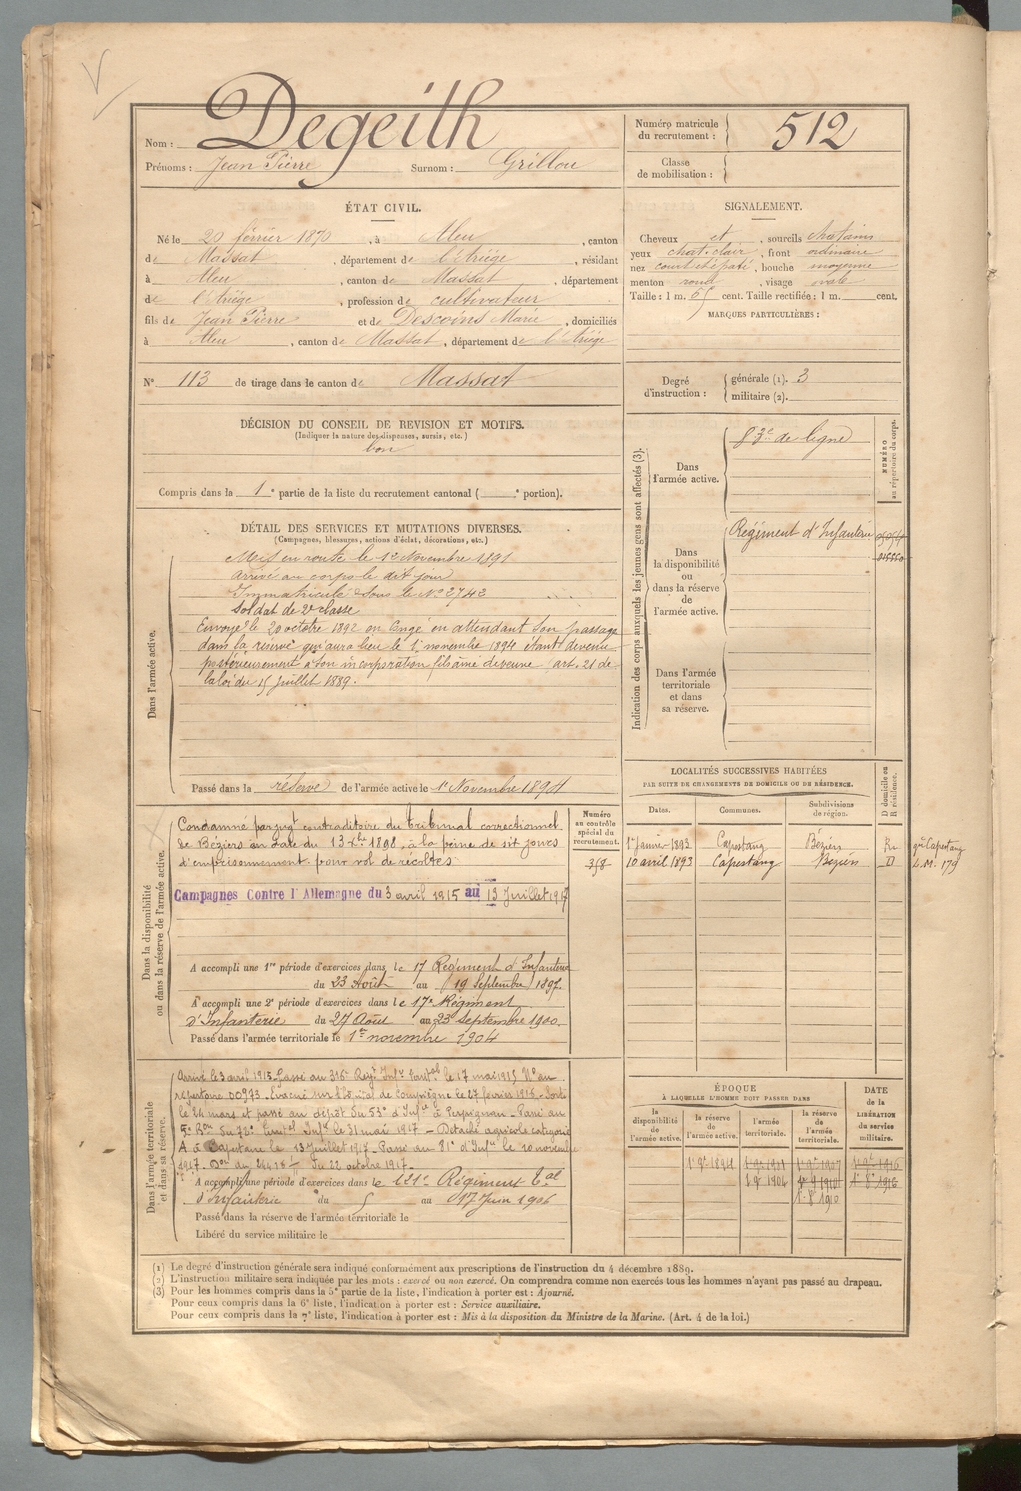 Nom : Degeith
Prénoms : Jean Pierre Surnom : Grillou
Numéro matricule du recrutement : 512
Classe de mobilisation :
ÉTAT CIVIL.
Né le 20 février 1870, à Aleu, canton
de Massat, département de l'Ariège, résidant
à Aleu, canton de Massat, département
de l'Ariège, profession de cultivateur
fils de Jean Pierre et de Descoins Marie, domiciliés
à Aleu, canton de Massat, département de l'Ariège
N° 113 de tirage dans le canton de Massat
SIGNALEMENT.
Cheveux et, sourcils chatains
yeux chat. clair, front ordinaire
nez court et épaté, bouche moyenne
menton rond, visage ovale
Taille : 1 m. 65 cent. Taille rectifiée : 1 m. cent.
MARQUES PARTICULIÈRES :
Degré d'instruction : générale (1). 3
militaire (2).
DÉCISION DU CONSEIL DE REVISION ET MOTIFS.
(Indiquer la nature des dispenses, sursis, etc.)
bon
Compris dans la 1e partie de la liste du recrutement cantonal ( e portion).
DÉTAIL DES SERVICES ET MUTATIONS DIVERSES.
(Campagnes, blessures, actions d'éclat, décorations, etc.)
Dans l'armée active.
Mis en route le 1er Novembre 1891
arrivé au corps le dit jour
Immatriculé sous le No 2742
Soldat de 2e classe
Envoyé le 20 octobre 1892 en Congé en attendant son passage
dans la réserve qui aura lieu le 1er novembre 1894 étant devenu
postérieurement à son incorporation fils aîné de veuve (art. 21 de
la loi du 15 Juillet 1889.
Passé dans la réserve de l'armée active le 1er Novembre 1894
Indication des corps auxquels les jeunes gens sont affectés (3).
Dans l'armée active.
83e de ligne
NUMÉRO au répertoire du corps.
Dans la disponibilité ou dans la réserve de l'armée active.
Régiment d'Infanterie
Dans l'armée territoriale et dans sa réserve.
LOCALITÉS SUCCESSIVES HABITÉES
PAR SUITE DE CHANGEMENTS DE DOMICILE OU DE RÉSIDENCE.
D domicile ou R résidence.
Dates. Communes. Subdivisions de région.
1er Janvier 1893 Capestang Béziers R
10 avril 1893 Capestang Béziers D
Capestang
L.M. 179
Dans la disponibilité ou dans la réserve de l'armée active.
Numéro au contrôle spécial du recrutement.
358
Condamné par jugt contradictoire du tribunal correctionnel
de Béziers en date du 13 Xbre 1898, à la peine de dix jours
d'emprisonnement pour vol de récoltes
Campagnes Contre l'Allemagne du 3 avril 1915 au 13 Juillet 1917
A accompli une 1re période d'exercices dans le 17 Régiment d'Infanterie
du 23 Août au 19 Septembre 1897.
A accompli une 2e période d'exercices dans le 17e Régiment
d'Infanterie du 27 Août au 23 Septembre 1900.
Passé dans l'armée territoriale le 1er novembre 1904
Dans l'armée territoriale et dans sa réserve.
Arrivé le 3 avril 1915. Passé au 316e Régt Infie Terral le 17 mai 1915 No au
répertoire 00973. Evacué sur hôpital de Compiègne le 27 février 1916. Sorti
le 24 mars et passé au dépôt du 53e d'Infie à Perpignan. Passé au
5e Bon du 72e Terral Infie le 31 mai 1917 - Détaché agricole catégorie
A à Capestang le 13 Juillet 1917. Passé au 81e d'Infie le 10 novembre
1917. Don au 24418 du 22 octobre 1917.
A accompli une période d'exercices dans le Régiment Tal
d'Infanterie du 5 au 17 Juin 1906
Passé dans la réserve de l'armée territoriale le
Libéré du service militaire le
ÉPOQUE
À LAQUELLE L'HOMME DOIT PASSER DANS
la disponibilité de l'armée active. la réserve de l'armée active. l'armée territoriale. la réserve de l'armée territoriale.
DATE de la LIBÉRATION du service militaire.
(1) Le degré d'instruction générale sera indiqué conformément aux prescriptions de l'instruction du 4 décembre 1889.
(2) L'instruction militaire sera indiquée par les mots : exercé ou non exercé. On comprendra comme non exercés tous les hommes n'ayant pas passé au drapeau.
(3) Pour les hommes compris dans la 5e partie de la liste, l'indication à porter est : Ajourné.
Pour ceux compris dans la 6e liste, l'indication à porter est : Service auxiliaire.
Pour ceux compris dans la 7e liste, l'indication à porter est : Mis à la disposition du Ministre de la Marine. (Art. 4 de la loi.)